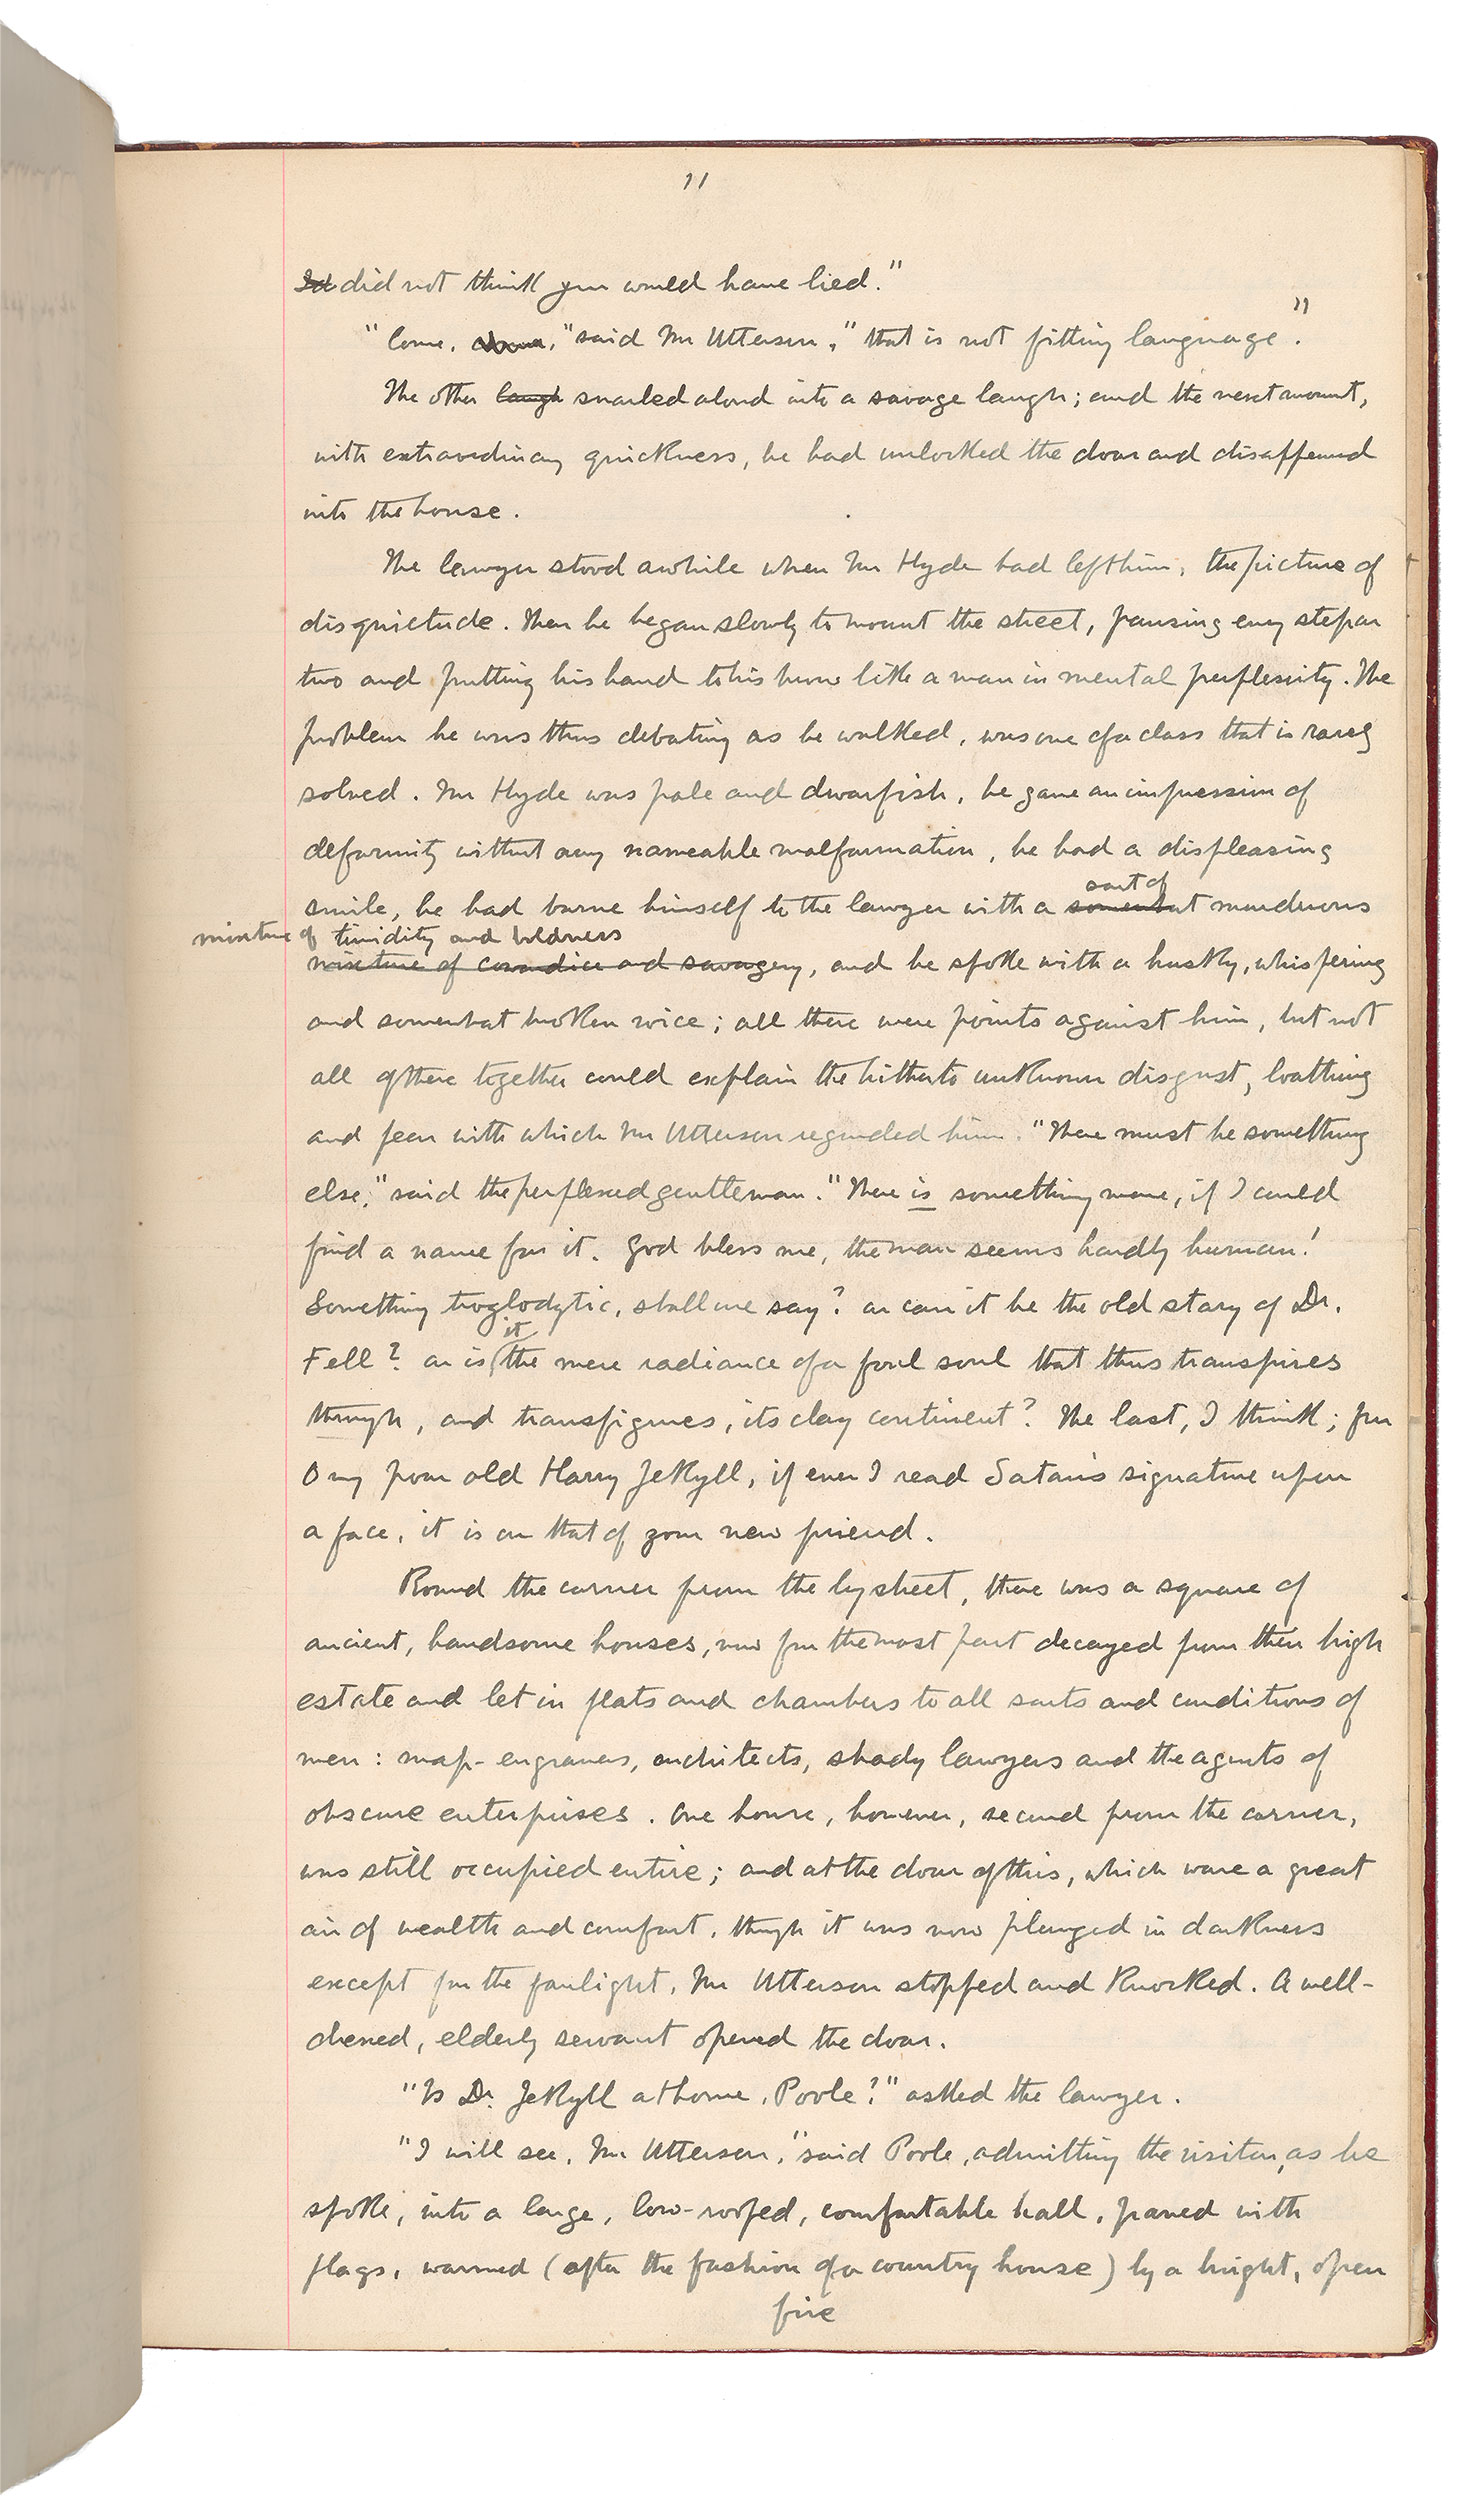 11
did not think you would have lied."
"Come," said Mr Utterson, "that is not fitting language."
The other laugh snarled aloud into a savage laugh; and the next moment,
with extraordinary quickness, he had unlocked the door and disappeared
into the house.
The lawyer stood awhile when Mr Hyde had left him, the picture of
disquietude. Then he began slowly to mount the street, pausing every step or
two and putting his hand to his brow like a man in mental perplexity. The
problem he was thus debating as he walked, was one of a class that is rarely
solved. Mr Hyde was pale and dwarfish, he gave an impression of
deformity without any nameable malformation, he had a displeasing
sort of
smile, he had borne himself to the lawyer with a somewhat murderous
mixture of timidity and boldness
mixture of cowardice and savagery, and he spoke with a husky, whispering
and somewhat broken voice; all these were points against him, but not
all of these together could explain the hitherto unknown disgust, loathing
and fear with which Mr Utterson regarded him. "There must be something
else," said the perplexed gentleman. "There is something more, if I could
find a name for it. God bless me, the man seems hardly human!
Something troglodytic, shall we say? or can it be the old story of Dr.
it
Fell? or is the mere radiance of a foul soul that thus transpires
through, and transfigures, its clay continent? The last, I think; for
O my poor old Harry Jekyll, if ever I read Satan's signature upon
a face, it is on that of your new friend.
Round the corner from the by street, there was a square of
ancient, handsome houses, now for the most part decayed from their high
estate and let in flats and chambers to all sorts and conditions of
men: map-engravers, architects, shady lawyers and the agents of
obscure enterprises. One house, however, second from the corner,
was still occupied entire; and at the door of this, which wore a great
air of wealth and comfort, though it was now plunged in darkness
except for the fanlight, Mr Utterson stopped and knocked. A well-
dressed, elderly servant opened the door.
"Is Dr. Jekyll at home, Poole?" asked the lawyer.
"I will see, Mr Utterson," said Poole, admitting the visitor, as he
spoke, into a large, low-roofed, comfortable hall, paved with
flags, warmed (after the fashion of a country house) by a bright, open
fire